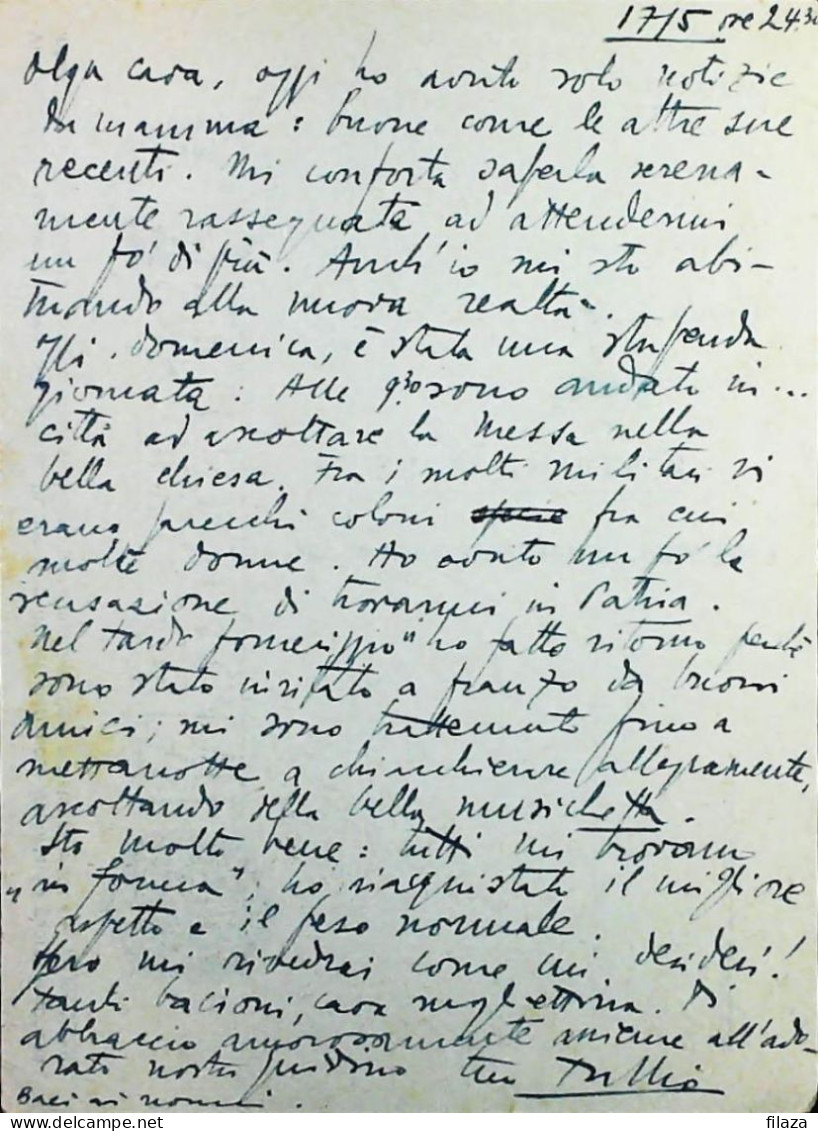 17/5 ore 24.30
Olga cara, oggi ho avuto solo notizie
da mamma: buone come le altre sue
recenti. Mi conforta saperla serena-
mente rassegnata ad attendermi
un pò di più. Anch'io mi sto abi-
tuando alla nuova realtà.
Oggi, domenica, è stata una stupenda
giornata: Alle 9 30 sono andato in...
città ad ascoltare la Messa nella
bella chiesa. Fra i molti militari vi
erano parecchi coloni fra cui
molte donne. Ho avuto un pò la
sensazione di trovarmi in Patria.
Nel tardo pomeriggio ho fatto ritorno perchè
sono stato invitato a pranzo da buoni
amici; mi sono trattenuto fino a
mezzanotte a chiacchierare allegramente,
ascoltando della bella musichetta.
Sto molto bene: tutti mi trovano
"in forma"; ho riacquistato il migliore
aspetto e il peso normale.
Spero mi rivedrai come mi desideri!
Tanti bacioni, cara mogliettina. Ti
abbraccio amorosamente assieme all'ado-
rato nostro Guidino tuo Tullio
Baci ai nonni.
filaza